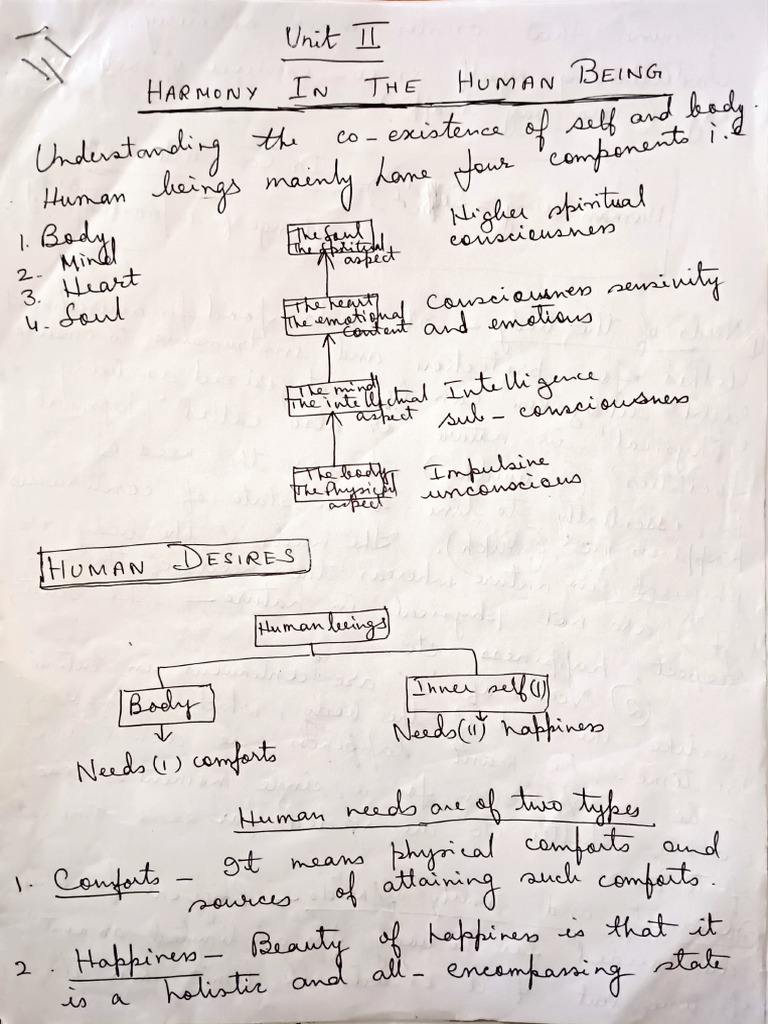 II
Unit II
HARMONY IN THE HUMAN BEING
Understanding the co-existence of self and body.
Human beings mainly have four components i.e
1. Body
2. Mind
3. Heart
4. Soul
The Soul
The spiritual
aspect
Higher spiritual
consciousness
The heart
The emotional
content
Consciousness sensivity
and emotions
The mind
The intellectual
aspect
Intelligence
sub-consciousness
The body
The Physical
aspect
Impulsive
unconscious
HUMAN DESIRES
Human beings
Body
Inner self(I)
Needs(I) comforts
Needs(II) happiness
Human needs are of two types
1. Comforts - It means physical comforts and
sources of attaining such comforts.
2. Happiness - Beauty of happiness is that it
is a holistic and all-encompassing state